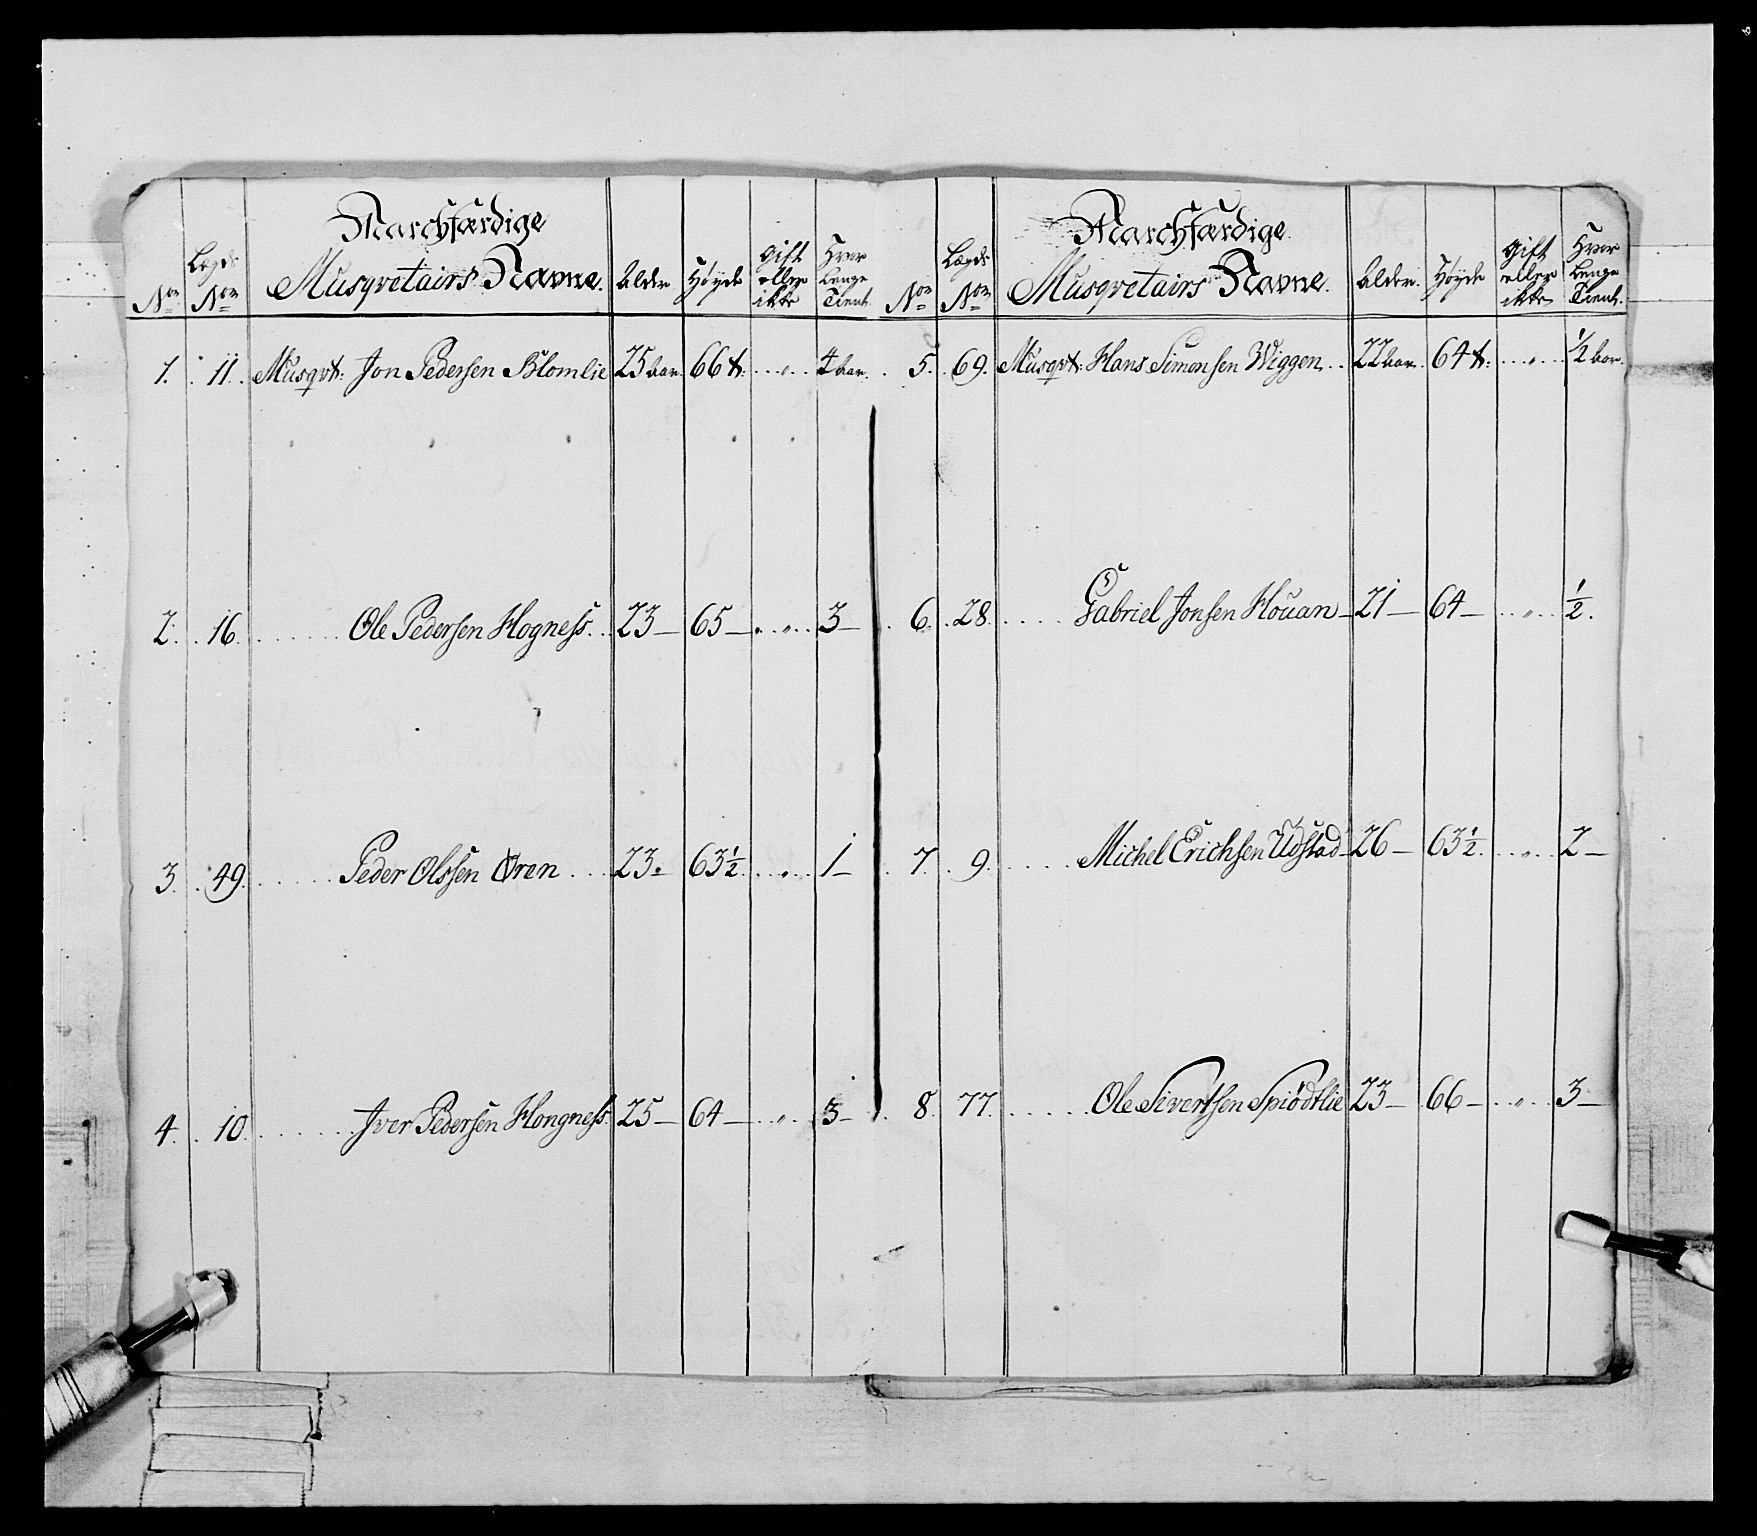 Marchfærdige
Musqvetairs Navne.
No
Lægds No
Alder
Høyde
Gift eller ikke
Hvor Lenge Tient
1. 11. Musqvt: Jon Pedersen Blomlie 25 aar 66 t: „ 4 aar.
2. 16. Ole Pedersen Hogness. 23 — 65 — „ 3 —
3. 49. Peder Olssen Øren 23. 63½ „ 1 —
4. 10. Iver Pedersen Hongness 25 — 64 — „ 3 —
Marchfærdige
Musqvetairs Navne.
No
Lægds No
Alder.
Høyde
Gift eller ikke
Hvor Lenge Tient.
5. 69. Musqvt: Hans Simonsen Wiggen 22 aar 64 t: „ ½ aar.
6. 28. Gabriel Jonsen Houan — 21 — 64 — „ ½.
7. 9. Michel Erichsen Udstad 26 — 63½ „ 2 —
8. 77. Ole Sivertsen Spiødtlie 23 — 66 — „ 3 —